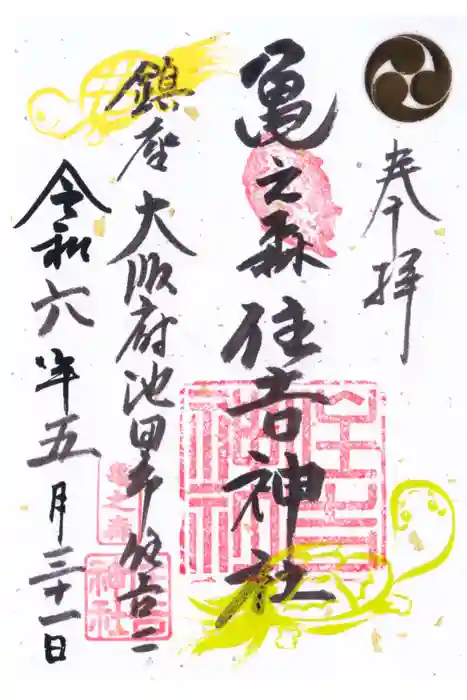 奉拝
亀之森住吉神社
鎮座 大阪府池田市住吉二
令和六年五月三十一日
住吉
神社
亀之森
住吉
神社